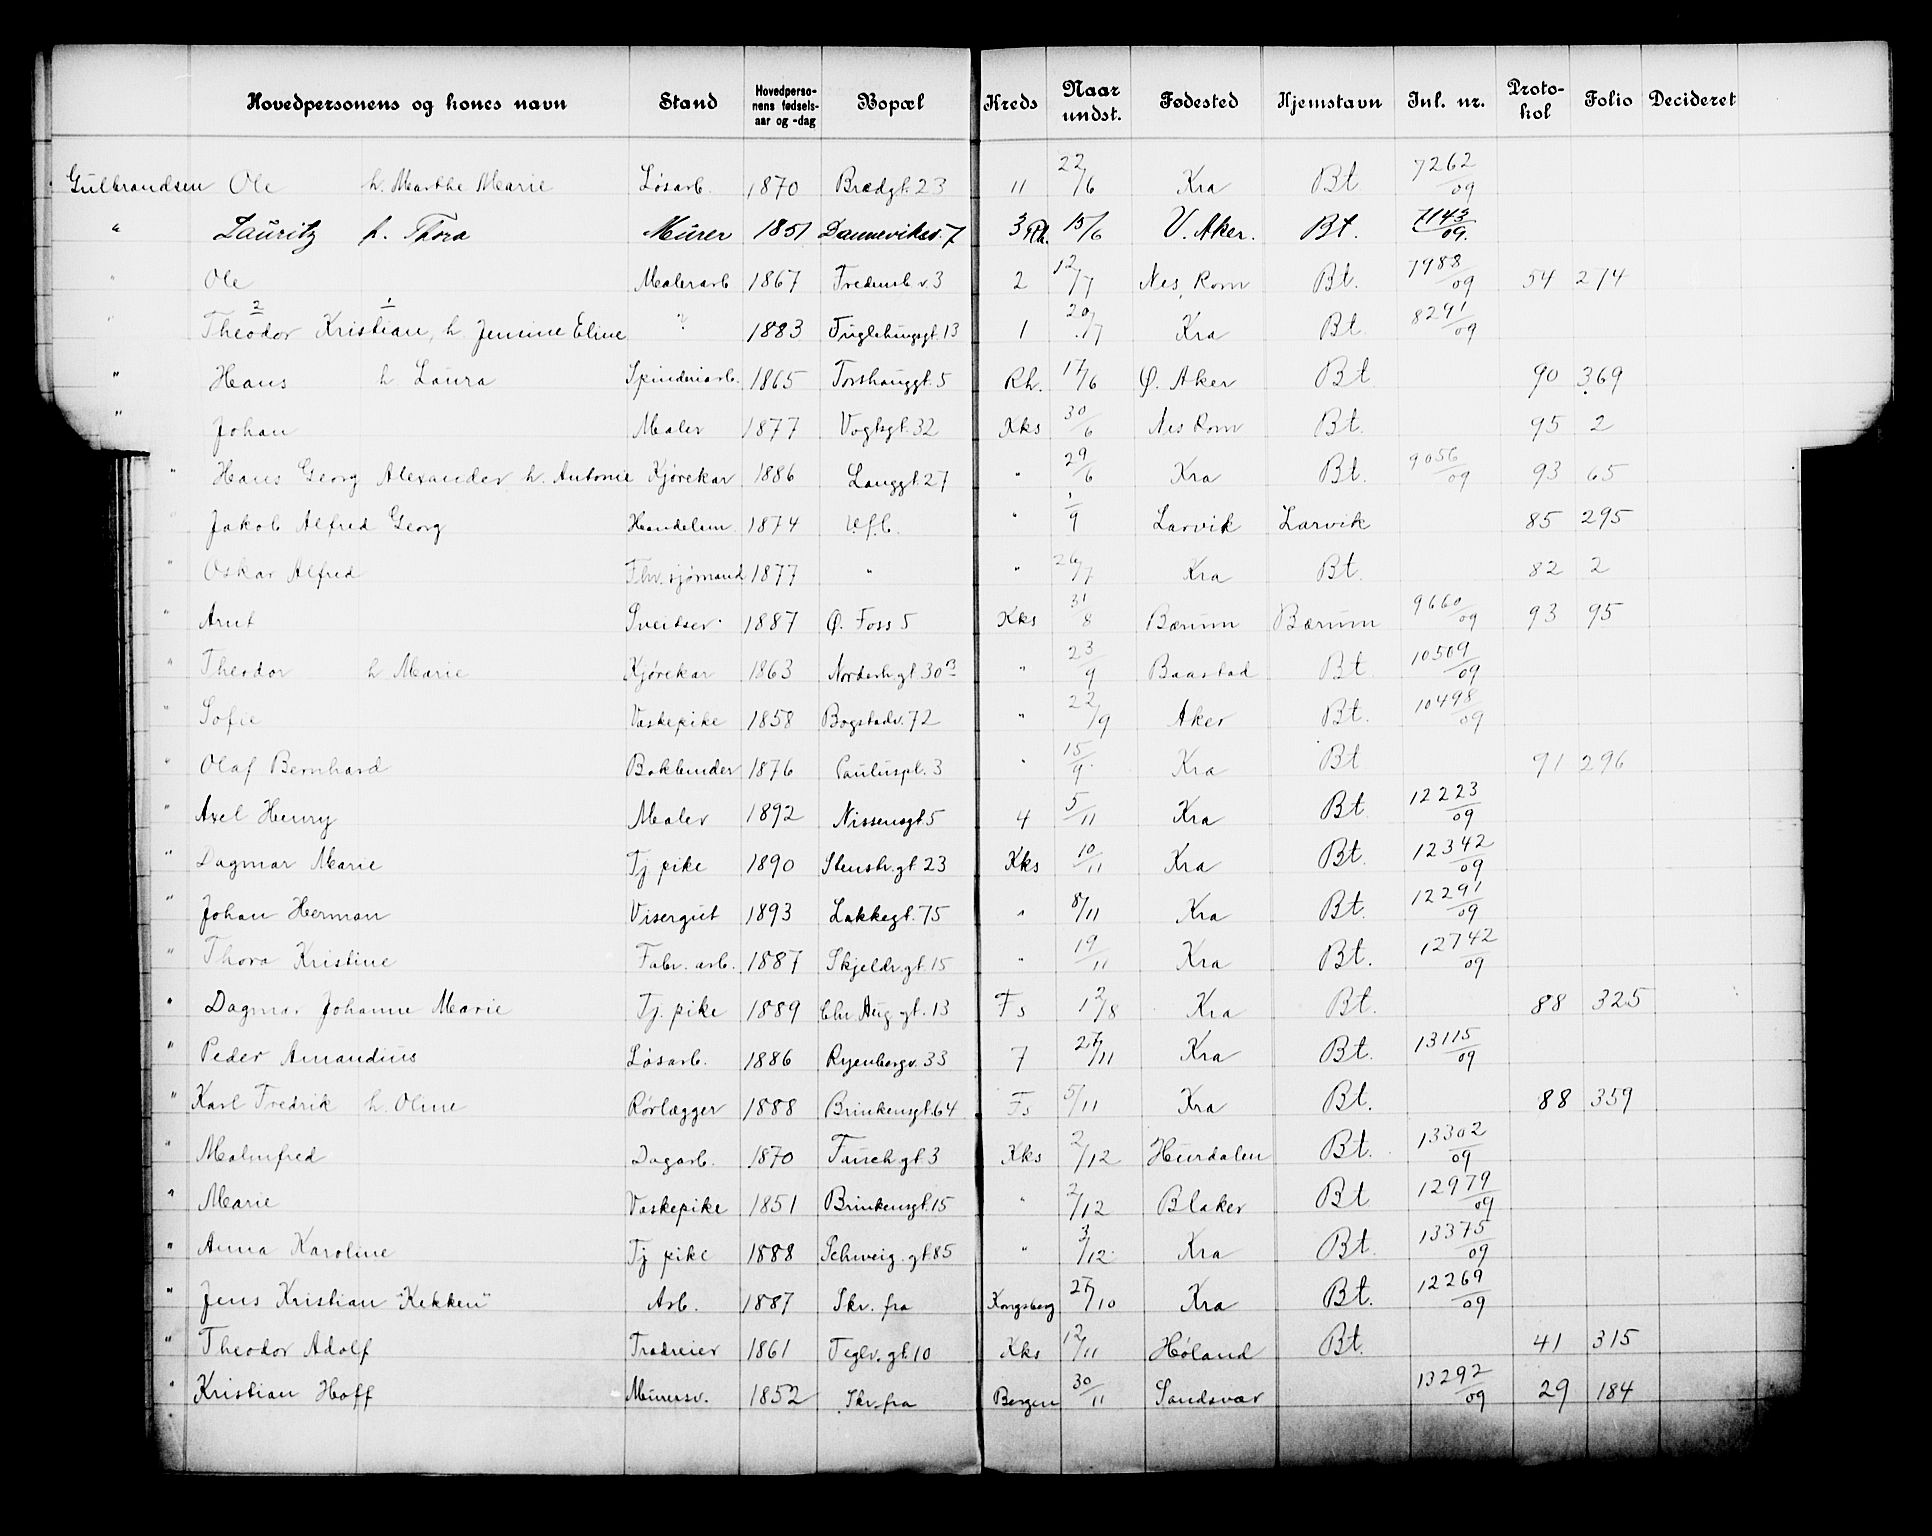 Hovedpersonens og kones navn Stand Hovedpersonens fødselsaar og -dag Bopæl Kreds Naar undst. Fødested Hjemstavn Inl. nr. Protokol Folio Decideret
Gulbrandsen Ole h. Marthe Marie Løsarb. 1870 Bredgt. 23 11 22/6 Kra Bt 7262/09
" Lauritz h. Thora Murer 1851 Dannevikes. 7 3 Rh. 15/6 V. Aker. Bt. 7143/09.
" Ole Malerarb 1867 Fredensb v. 3 2 12/7 Nes, Rom Bt. 7988/09 54 274
" 2 Theodor 1 Kristian, h. Jensine Eline " 1883 Fuglehaugsgt. 13 1 20/7 Kra Bt. 8291/09
" Hans h. Laura Spinderiarb. 1865 Torshauggt. 5 Rh. 17/6 Ø. Aker Bt. 90 369
" Johan Maler 1877 Vogtsgt. 32 Kks 30/6 Nes Rom Bt. 95 2
" Hans Georg Alexander h. Antonie Kjørekar 1886 Langgt. 27 " 29/6 Kra Bt. 9056/09 93 65
Jakob Alfred Georg Handelsm. 1874 U.f.b. " 1/9 Larvik Larvik 85 295
" Oskar Alfred Fhv. sjømand 1877 " " 26/7 Kra Bt. 82 2
" Arnt Sveitser 1887 Ø. Foss 5 Kks 31/8 Bærum Bærum 9660/09 93 95
" Theodor h. Marie Kjørekar 1863 Norderh. gt. 30 B " 23/9 Baastad Bt. 10509/09
" Sofie Vaskepike 1858 Bogstadv. 72 " 22/9 Aker Bt. 10498/09
" Olaf Bernhard Bokbinder 1876 Pauluspl. 3 " 15/9 Kra Bt 91 296
" Axel Henry Maler 1892 Nissensgt 5 4 5/11 Kra Bt. 12223/09
" Dagmar Marie Tj pike 1890 Stenstr. gt. 23 Kks 10/11 Kra Bt. 12342/09
" Johan Herman Visergut 1893 Lakkegt. 75 " 8/11 Kra Bt. 12291/09
" Thora Kristine Fabr. arb. 1887 Skjeldr. gt. 15 " 19/11 Kra Bt. 12742/09
" Dagmar Johanne Marie Tj. pike 1889 Chr Aug gt. 13 Fs 12/8 Kra Bt. 88 325
" Peder Amandius Løsarb. 1886 Ryenbergv. 33 7 27/11 Kra Bt. 13115/09
" Karl Fredrik h. Oline Rørlægger 1888 Brinkensgt. 64 Fs 5/11 Kra Bt. 88 359
" Malmfred Dagarb. 1870 Fauch gt. 3 Kks 2/12 Hurdalen Bt. 13302/09
" Marie Vaskepike 1851 Brinkensgt. 15 " 2/12 Blaker Bt 12979/09
" Anna Karoline Tj pike 1888 Schweig. gt. 85 " 3/12 Kra Bt. 13375/09
" Jens Kristian "Kekken" Arb. 1887 Skr. fra Kongsberg 27/10 Kra Bt. 12269/09
" Theodor Adolf Fradreier 1861 Teglv. gt. 10 Kks 12/11 Høland Bt. 41 315
" Kristian Hoff Murersv. 1852 Skr. fra Bergen 30/11 Sandsvær 13292/09 29 184